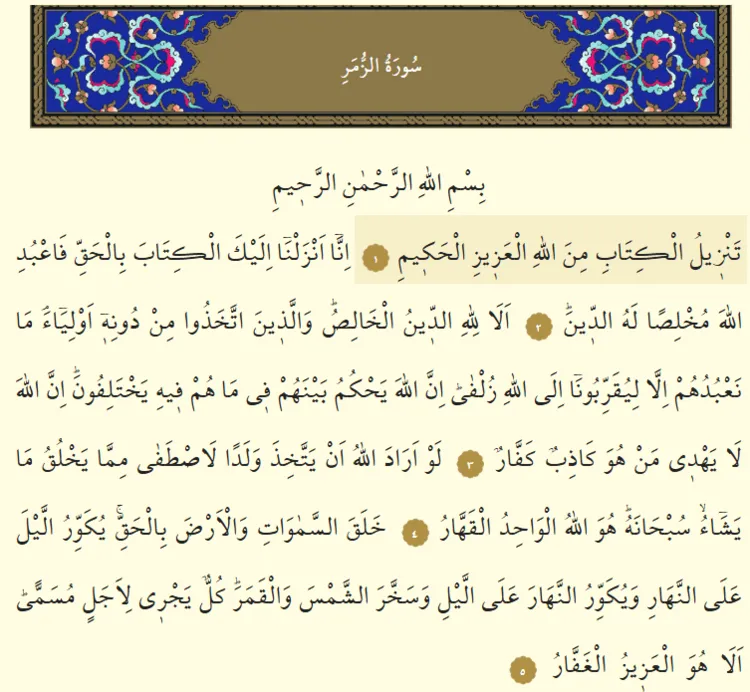 سُورَةُ الزُّمَرِ
بِسْمِ اللهِ الرَّحْمٰنِ الرَّح۪يمِ
تَنْز۪يلُ الْكِتَابِ مِنَ اللهِ الْعَز۪يزِ الْحَك۪يمِ ١ اِنَّٓا اَنْزَلْنَٓا اِلَيْكَ الْكِتَابَ بِالْحَقِّ فَاعْبُدِ
اللهَ مُخْلِصًا لَهُ الدّ۪ينَۜ ٢ اَلَا لِلهِ الدّ۪ينُ الْخَالِصُۜ وَالَّذ۪ينَ اتَّخَذُوا مِنْ دُونِه۪ٓ اَوْلِيَٓاءَۢ مَا
نَعْبُدُهُمْ اِلَّا لِيُقَرِّبُونَٓا اِلَى اللهِ زُلْفٰىۜ اِنَّ اللهَ يَحْكُمُ بَيْنَهُمْ ف۪ي مَا هُمْ ف۪يهِ يَخْتَلِفُونَۜ اِنَّ اللهَ
لَا يَهْد۪ي مَنْ هُوَ كَاذِبٌ كَفَّارٌ ٣ لَوْ اَرَادَ اللهُ اَنْ يَتَّخِذَ وَلَدًا لَاصْطَفٰى مِمَّا يَخْلُقُ مَا
يَشَٓاءُۙ سُبْحَانَهُۜ هُوَ اللهُ الْوَاحِدُ الْقَهَّارُ ٤ خَلَقَ السَّمٰوَاتِ وَالْاَرْضَ بِالْحَقِّۚ يُكَوِّرُ الَّيْلَ
عَلَى النَّهَارِ وَيُكَوِّرُ النَّهَارَ عَلَى الَّيْلِ وَسَخَّرَ الشَّمْسَ وَالْقَمَرَۜ كُلٌّ يَجْر۪ي لِاَجَلٍ مُسَمًّىۜ
اَلَا هُوَ الْعَز۪يزُ الْغَفَّارُ ٥